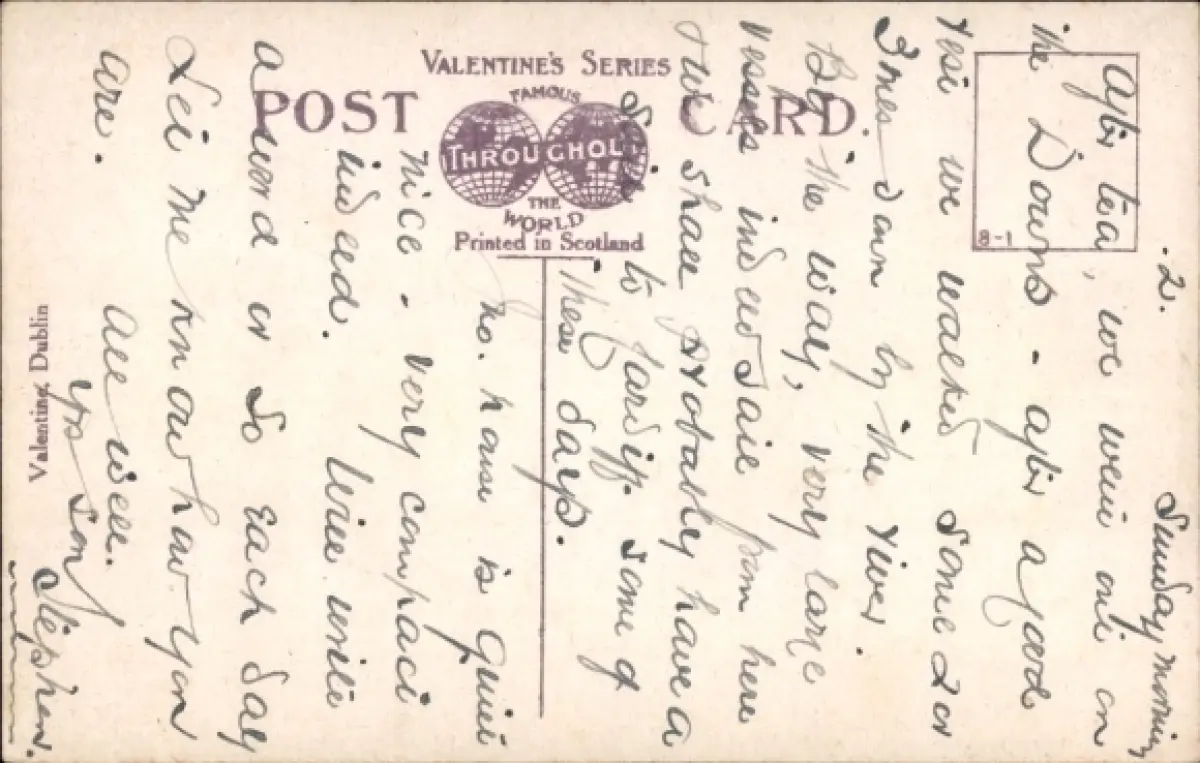 VALENTINE'S SERIES
POST CARD
FAMOUS
THROUGHOUT
THE
WORLD
Printed in Scotland
8-1
Valentine, Dublin
.2.
Sunday morning
After tea, we went out on
the Downs - after a good
rest we walked some 2 or
3 mes. down by the river.
By the way, very large
vessels indeed sail from here
& we shall probably have a
sail to Cardiff some of
these days.
No. house is quiet
nice - very compact
indeed. Will write
a word or so each day
Let me know how you
are. All well.
Yrs son
Stephen.